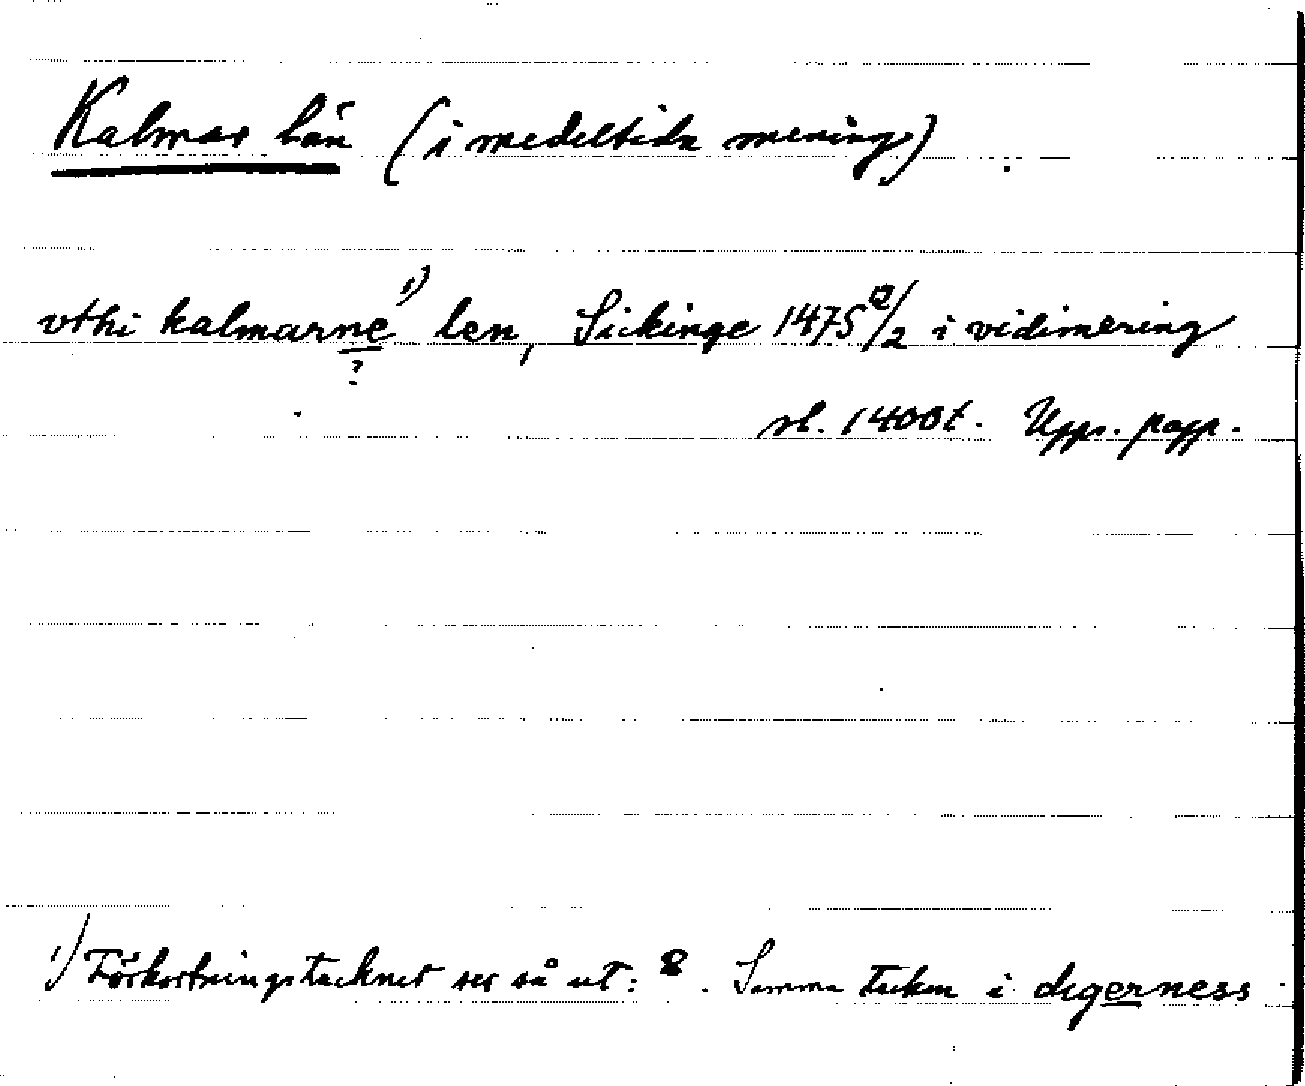 Kalmar län (i medeltida mening)
vthi kalmarne¹⁾ len, Sickinge 1475 /2 i vidimering
?
sl. 1400t. Upps. papp.
¹⁾ Förkortningstecknet ser så ut: 8. Samma tecken i digerness